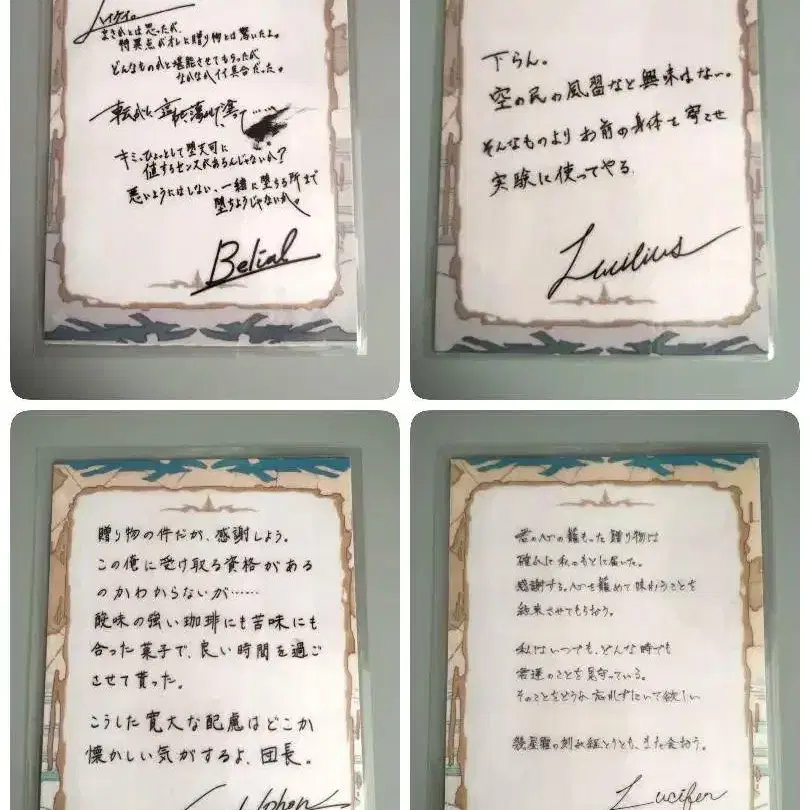 ハイケイ。
まさかとは思ったが、
特異点がオレに贈り物とは驚いたよ。
どんなものかと堪能させてもらったが
なかなかイイ具合だった。
キミ、ひょっとして堕天司に
値するセンスがあるんじゃないか?
悪いようにはしない、一緒に堕ちる所まで
堕ちようじゃないか。
Belial
下らん。
空の民の風習など興味はない。
そんなものよりお前の身体を寄こせ
実験に使ってやる。
Lucilius
贈り物の件だが、感謝しよう。
この俺に受け取る資格がある
のかわからないが……
酸味の強い珈琲にも苦味にも
合った菓子で、良い時間を過ご
させて貰った。
こうした寛大な配慮はどこか
懐かしい気がするよ、団長。
君の心の籠もった贈り物は
確かに私のもとに届いた。
感謝する。心を籠めて味わうことを
約束させてもらおう。
私はいつでも、どんな時でも
君達のことを見守っている。
そのことをどうか忘れずにいて欲しい
幾星霜の刻み経とうとも、また会おう。
Lucifer